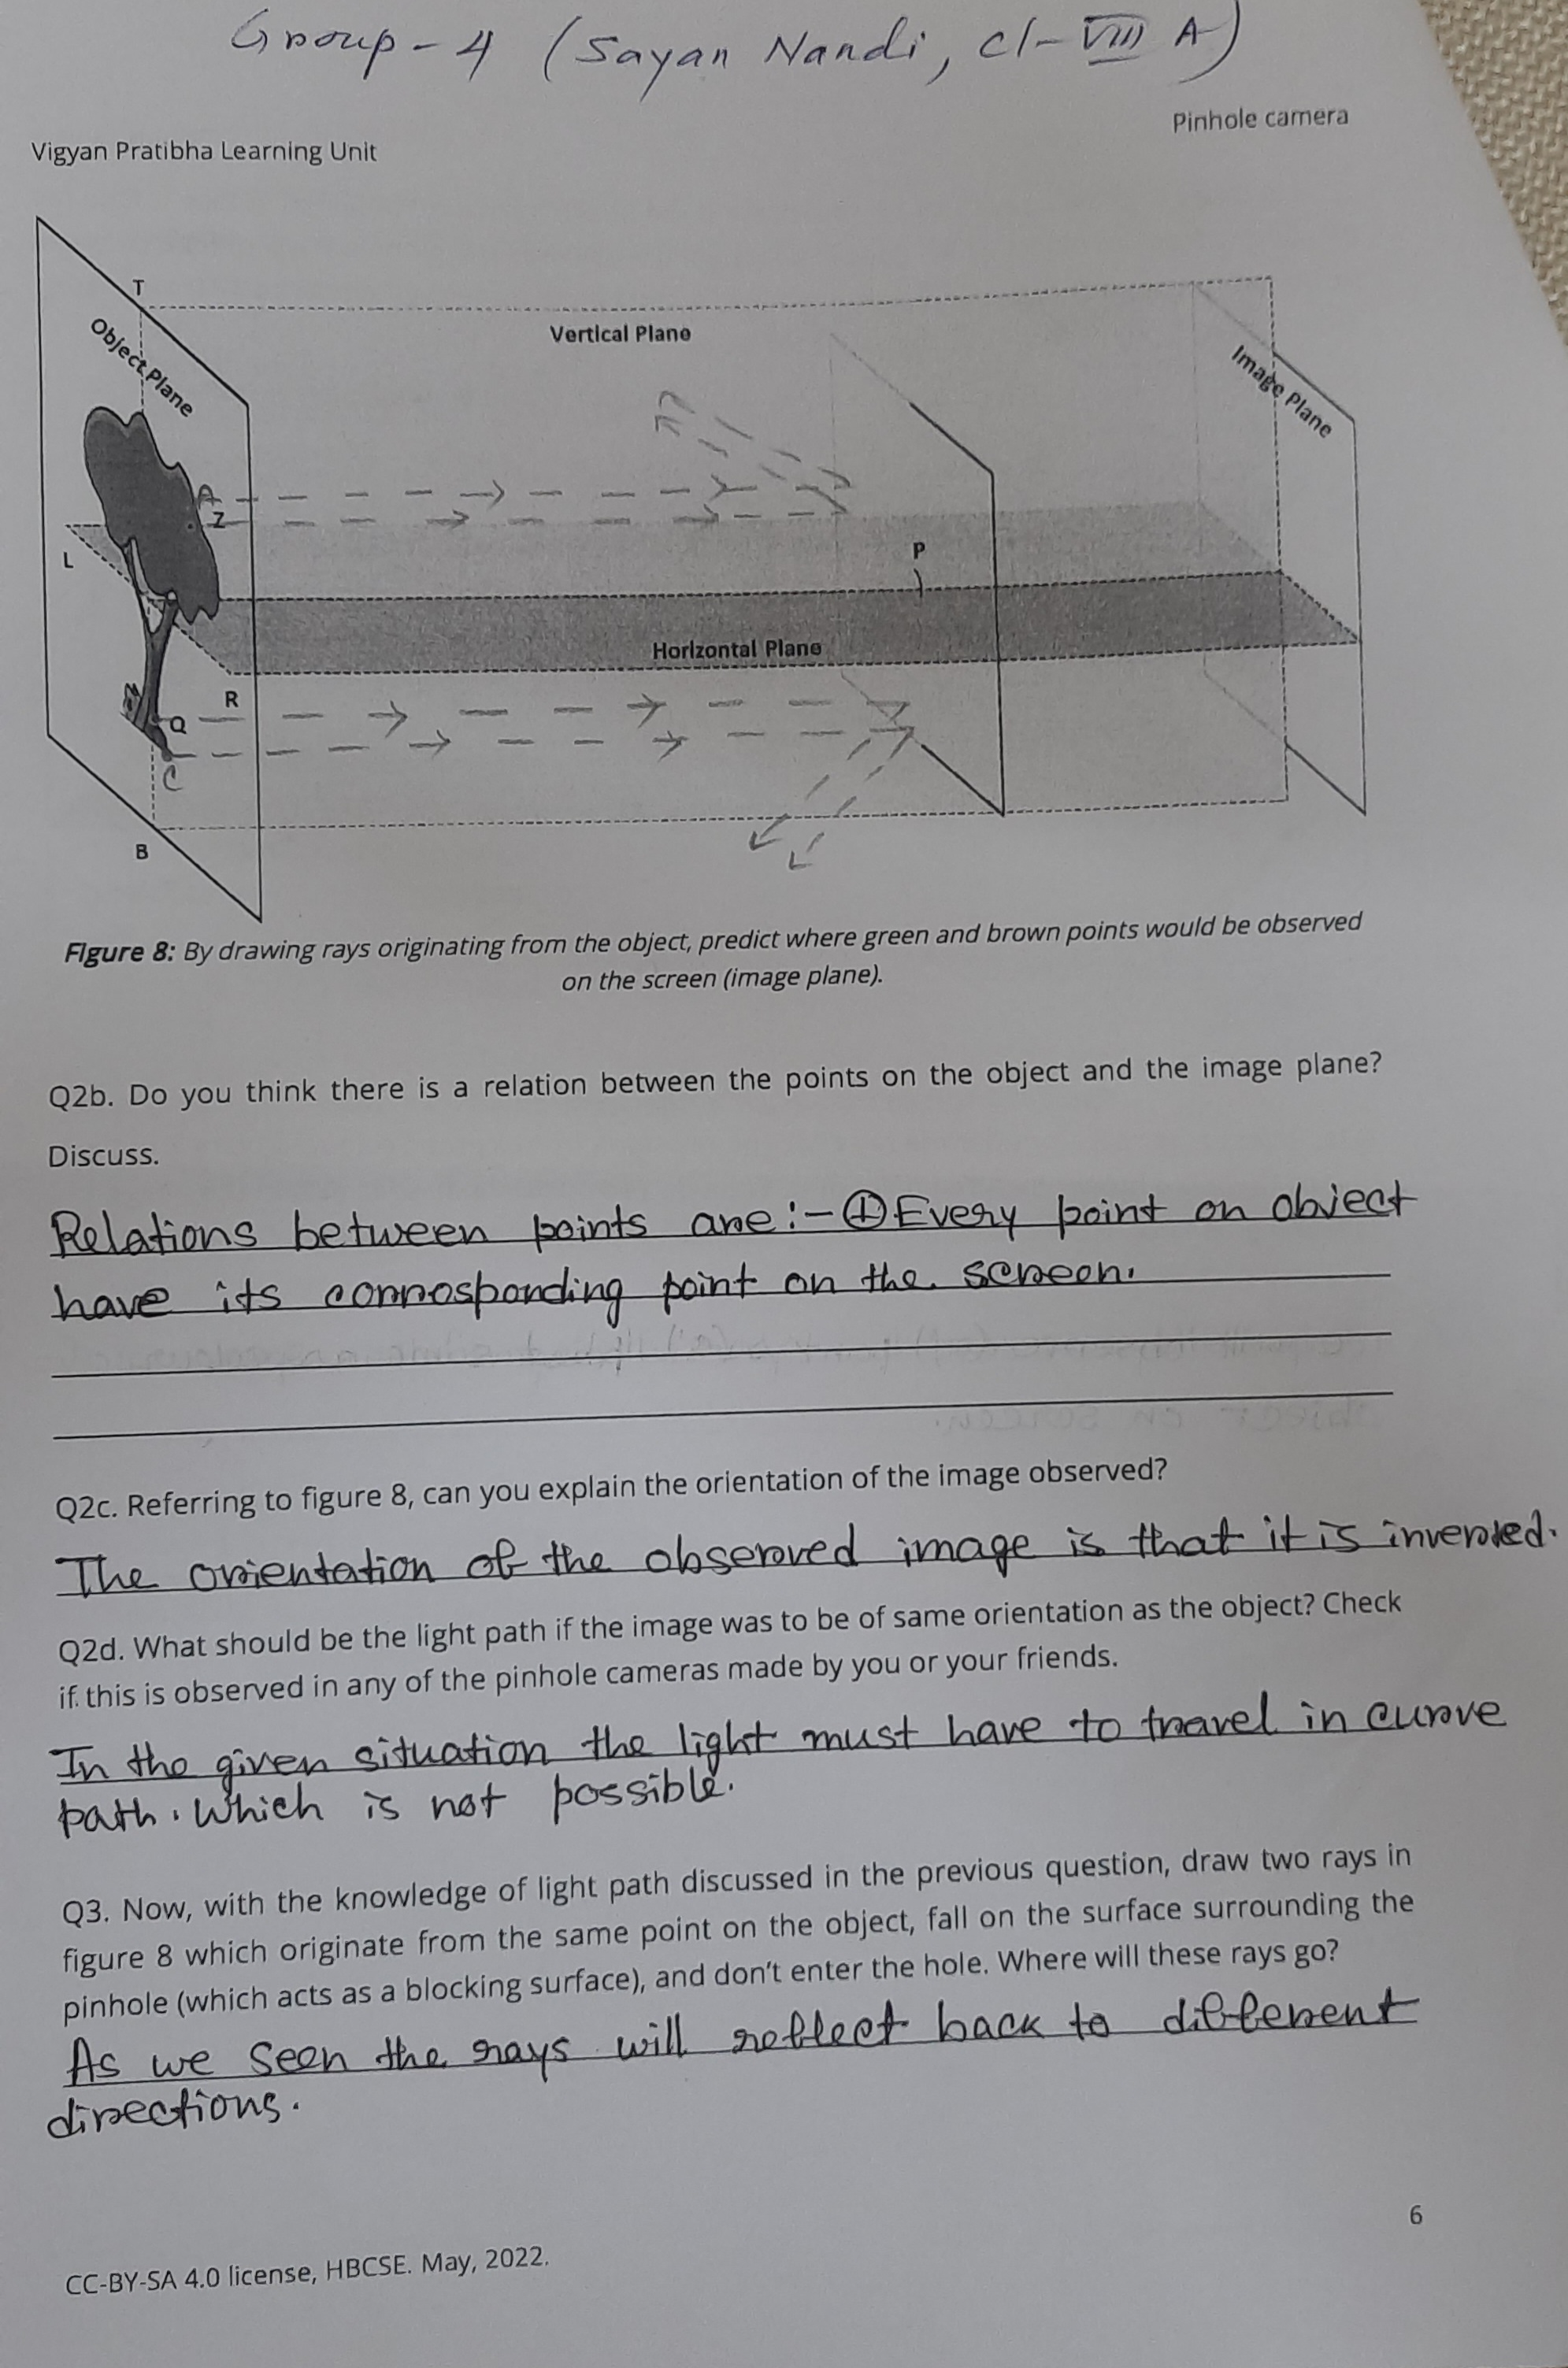 Group - 4 (Sayan Nandi, cl- VIII A)
Pinhole camera
Vigyan Pratibha Learning Unit
T
Object Plane
Vertical Plane
Image Plane
A
Z
L
P
Horizontal Plane
R
Q
C
B
Figure 8: By drawing rays originating from the object, predict where green and brown points would be observed
on the screen (image plane).
Q2b. Do you think there is a relation between the points on the object and the image plane?
Discuss.
Relations between points are:- ① Every point on object
have its corrosponding point on the screen.
Q2c. Referring to figure 8, can you explain the orientation of the image observed?
The orientation of the observed image is that it is inverted.
Q2d. What should be the light path if the image was to be of same orientation as the object? Check
if this is observed in any of the pinhole cameras made by you or your friends.
In the given situation the light must have to travel in curve
path. Which is not possible.
Q3. Now, with the knowledge of light path discussed in the previous question, draw two rays in
figure 8 which originate from the same point on the object, fall on the surface surrounding the
pinhole (which acts as a blocking surface), and don't enter the hole. Where will these rays go?
As we seen the rays will reflect back to different
directions.
6
CC-BY-SA 4.0 license, HBCSE. May, 2022.